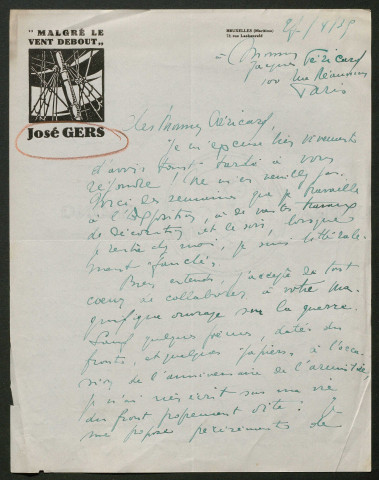 "MALGRÉ LE
VENT DEBOUT"
José GERS
BRUXELLES (Maritime)
Monsieur
Jacques Péricard
100 rue Réaumur
Paris
Cher Monsieur Péricard,
Je m'excuse très vivement
d'avoir tant tardé à vous
répondre! Ne m'en veuillez pas.
Voici des semaines que je travaille
à l'Exposition, à de vastes travaux
de décoration et le soir, lorsque
je rentre chez moi, je suis littérale-
ment fauché.
Bien entendu, j'accepte de tout
cœur de collaborer à votre ma-
gnifique ouvrage sur la guerre.
Sauf quelques poèmes, datés du
front, et quelques papiers à l'occa-
sion de l'anniversaire de l'armistice,
je n'ai rien écrit sur ma vie
du front proprement dite. Je
me propose précisément de